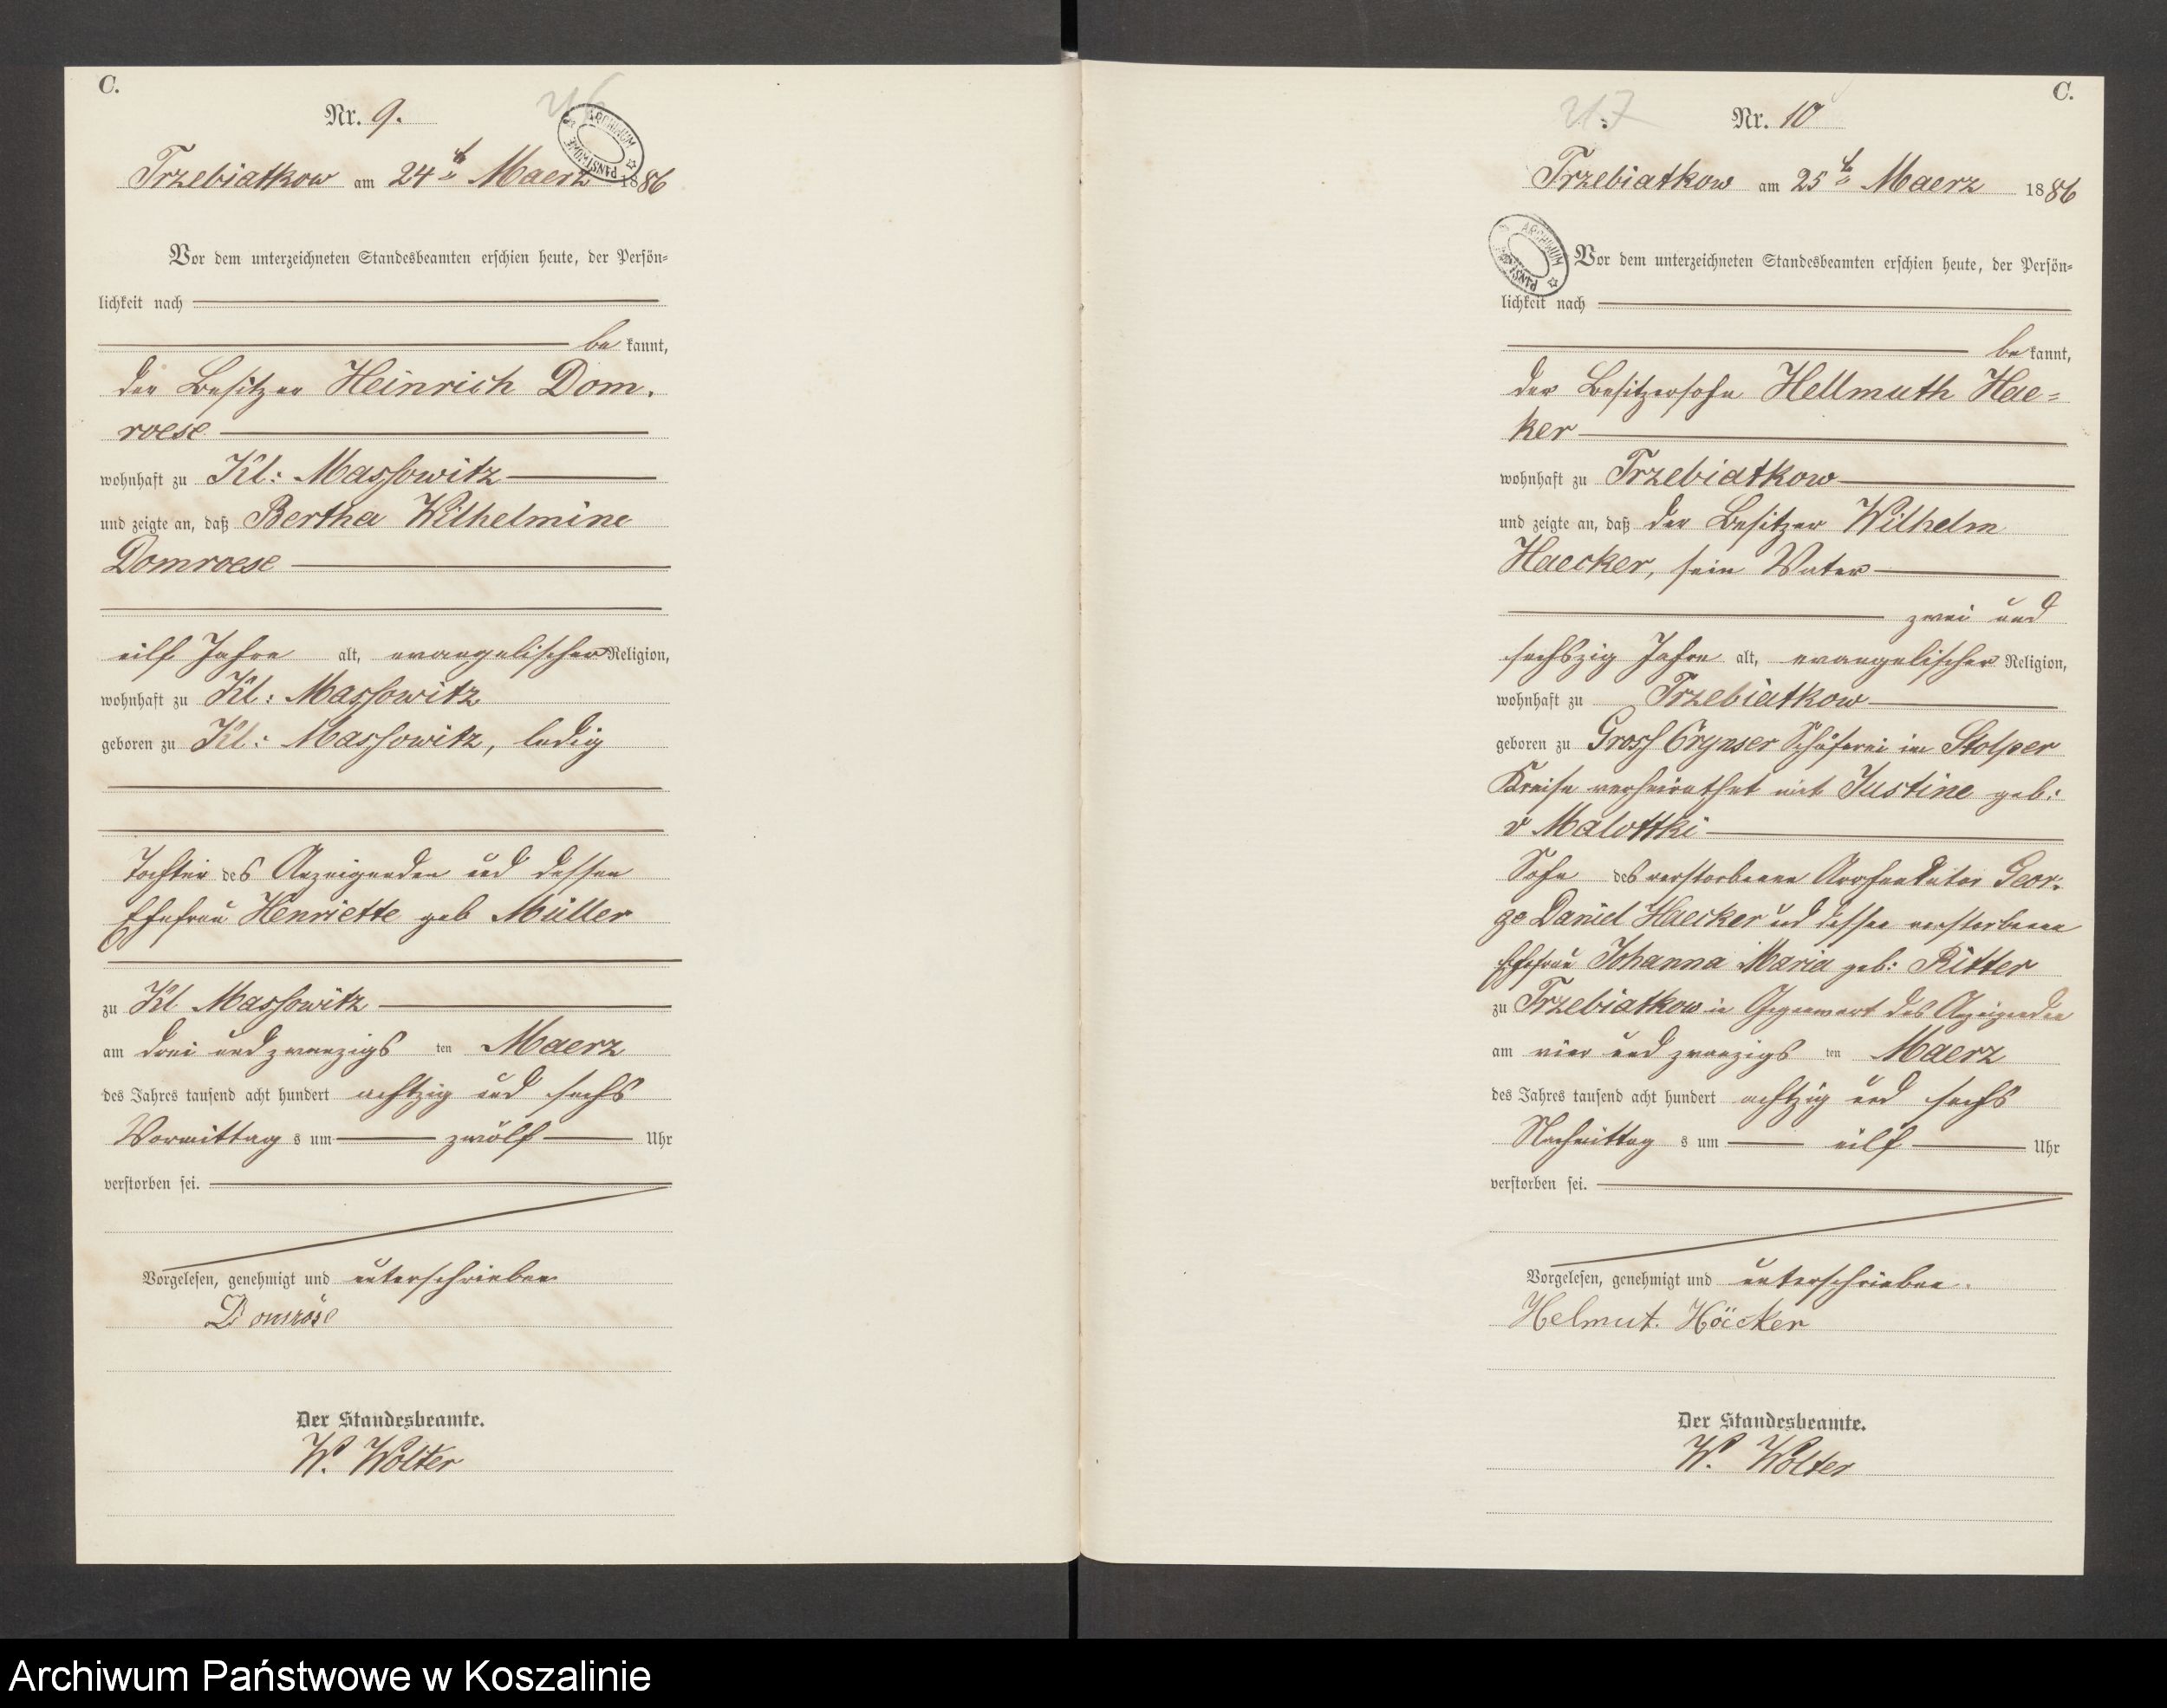 C.
Nr. 9.
Trzebiatkow am 24ten Maerz 1886
Vor dem unterzeichneten Standesbeamten erschien heute, der Persön=
lichkeit nach
bekannt,
der Besitzer Heinrich Dom.
roese
wohnhaft zu Kl: Massowitz
und zeigte an, daß Bertha Wilhelmine
Domroese
eilf Jahre alt, evangelischer Religion,
wohnhaft zu Kl: Massowitz
geboren zu Kl: Massowitz, ledig
Tochter des Anzeigenden und dessen
Ehefrau Henriette geb Müller
zu Kl Massowitz
am drei und zwanzigsten Maerz
des Jahres tausend acht hundert achtzig und sechs
Vormittags um zwölf Uhr
verstorben sei.
Vorgelesen, genehmigt und unterschrieben
Domröse
Der Standesbeamte.
W. Wolter
ARCHIWUM PAŃSTWOWE
C.
217
Nr. 10
Trzebiatkow am 25ten Maerz 1886
Vor dem unterzeichneten Standesbeamten erschien heute, der Persön=
lichkeit nach
bekannt,
der Besitzersohn Hellmuth Hae=
ker
wohnhaft zu Trzebiatkow
und zeigte an, daß der Besitzer Wilhelm
Haecker, sein Vater
zwei und
sechszig Jahre alt, evangelischer Religion,
wohnhaft zu Trzebiatkow
geboren zu Gross Schäferei im Stolper
Kreise verheirathet mit Justine geb:
v Malottki
Sohn des verstorbenen Geor:
ge Daniel Haecker und dessen verstorbenen
Ehefrau Johanna Maria geb: Ritter
zu Trzebiatkow in Gegenwart des Anzeigenden
am vier und zwanzigsten Maerz
des Jahres tausend acht hundert achtzig und sechs
Nachmittags um eilf Uhr
verstorben sei.
Vorgelesen, genehmigt und unterschrieben.
Helmut. Häcker
Der Standesbeamte.
W. Wolter
ARCHIWUM PAŃSTWOWE
Archiwum Państwowe w Koszalinie